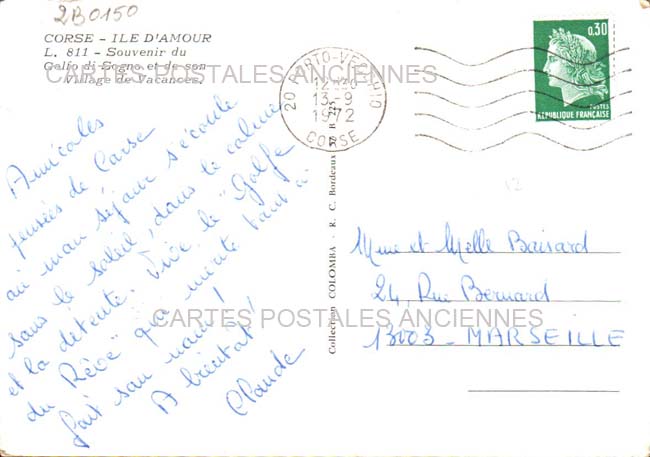 2B0150
CORSE - ILE D'AMOUR
L. 811 - Souvenir du
Golfo di Sogno et de son
Village de Vacances.
CARTES POSTALES ANCIENNES
20 PORTO-VECCHIO
13-9
1972
CORSE
0,30
POSTES
REPUBLIQUE FRANÇAISE
Amicales
pensées de Corse
où mon séjour s'écoule
sous le soleil, dans le calme
et la détente. Vive le "Golfe
du Rêve" qui mérite tant
fort son nom !
A bientôt !
Claude
Collection COLOMBA - R. C. Bordeaux 57 B 225
Mme et Melle Boisard
24, Rue Bernard
13003 - MARSEILLE
CARTES POSTALES ANCIENNES